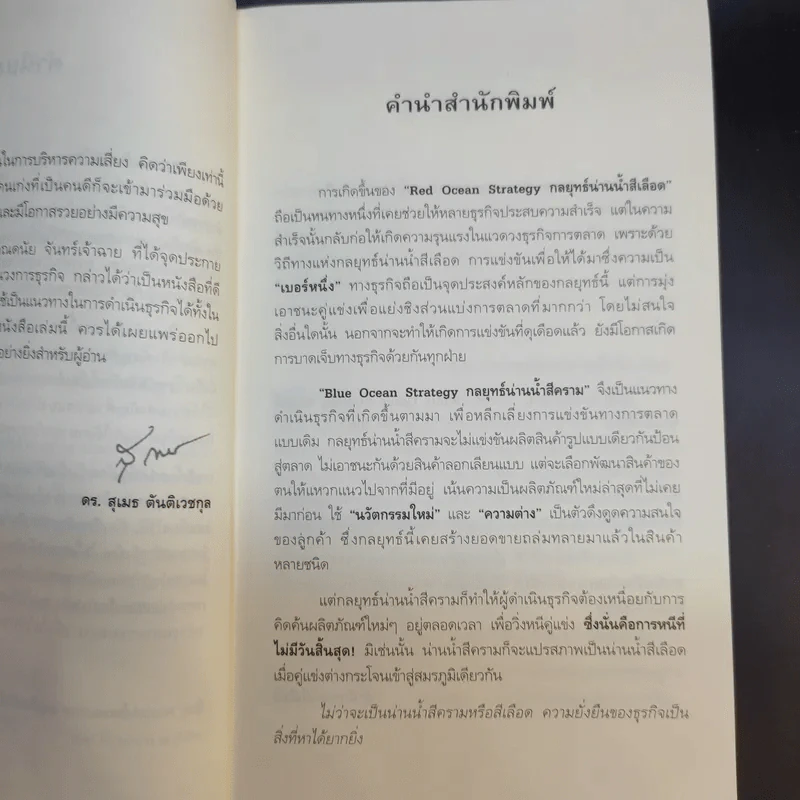 ในการบริหารความเสี่ยง คิดว่าเพียงเท่านี้
คนเก่งที่เป็นคนดีก็จะเข้ามาร่วมมือด้วย
และมีโอกาสรวยอย่างมีความสุข
ดนัย จันทร์เจ้าฉาย ที่ได้จุดประกาย
วงการธุรกิจ กล่าวได้ว่าเป็นหนังสือที่ดี
ใช้เป็นแนวทางในการดำเนินธุรกิจได้ทั้งใน
หนังสือเล่มนี้ ควรได้เผยแพร่ออกไป
อย่างยิ่งสำหรับผู้อ่าน
ดร. สุเมธ ตันติเวชกุล
คำนำสำนักพิมพ์
การเกิดขึ้นของ "Red Ocean Strategy กลยุทธ์น่านน้ำสีเลือด"
ถือเป็นหนทางหนึ่งที่เคยช่วยให้หลายธุรกิจประสบความสำเร็จ แต่ในความ
สำเร็จนั้นกลับก่อให้เกิดความรุนแรงในแวดวงธุรกิจการตลาด เพราะด้วย
วิถีทางแห่งกลยุทธ์น่านน้ำสีเลือด การแข่งขันเพื่อให้ได้มาซึ่งความเป็น
"เบอร์หนึ่ง" ทางธุรกิจถือเป็นจุดประสงค์หลักของกลยุทธ์นี้ แต่การมุ่ง
เอาชนะคู่แข่งเพื่อแย่งชิงส่วนแบ่งการตลาดที่มากกว่า โดยไม่สนใจ
สิ่งอื่นใดนั้น นอกจากจะทำให้เกิดการแข่งขันที่ดุเดือดแล้ว ยังมีโอกาสเกิด
การบาดเจ็บทางธุรกิจด้วยกันทุกฝ่าย
"Blue Ocean Strategy กลยุทธ์น่านน้ำสีคราม" จึงเป็นแนวทาง
ดำเนินธุรกิจที่เกิดขึ้นตามมา เพื่อหลีกเลี่ยงการแข่งขันทางการตลาด
แบบเดิม กลยุทธ์น่านน้ำสีครามจะไม่แข่งขันผลิตสินค้ารูปแบบเดียวกันป้อน
สู่ตลาด ไม่เอาชนะกันด้วยสินค้าลอกเลียนแบบ แต่จะเลือกพัฒนาสินค้าของ
ตนให้แหวกแนวไปจากที่มีอยู่ เน้นความเป็นผลิตภัณฑ์ใหม่ล่าสุดที่ไม่เคย
มีมาก่อน ใช้ "นวัตกรรมใหม่" และ "ความต่าง" เป็นตัวดึงดูดความสนใจ
ของลูกค้า ซึ่งกลยุทธ์นี้เคยสร้างยอดขายถล่มทลายมาแล้วในสินค้า
หลายชนิด
แต่กลยุทธ์น่านน้ำสีครามก็ทำให้ผู้ดำเนินธุรกิจต้องเหนื่อยกับการ
คิดค้นผลิตภัณฑ์ใหม่ๆ อยู่ตลอดเวลา เพื่อวิ่งหนีคู่แข่ง ซึ่งนั่นคือการหนีที่
ไม่มีวันสิ้นสุด! มิเช่นนั้น น่านน้ำสีครามก็จะแปรสภาพเป็นน่านน้ำสีเลือด
เมื่อคู่แข่งต่างกระโจนเข้าสู่สมรภูมิเดียวกัน
ไม่ว่าจะเป็นน่านน้ำสีครามหรือสีเลือด ความยั่งยืนของธุรกิจเป็น
สิ่งที่หาได้ยากยิ่ง